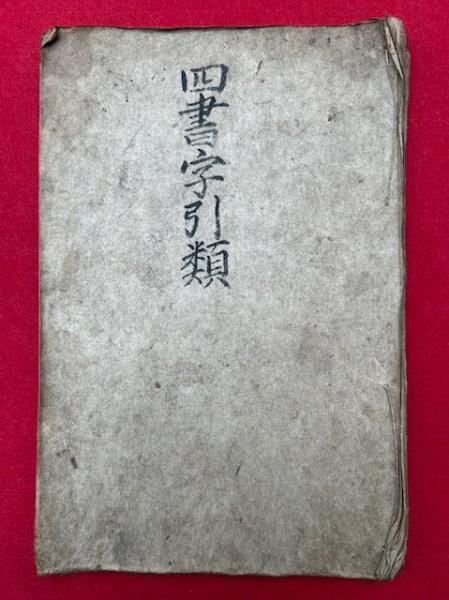 四書字引類